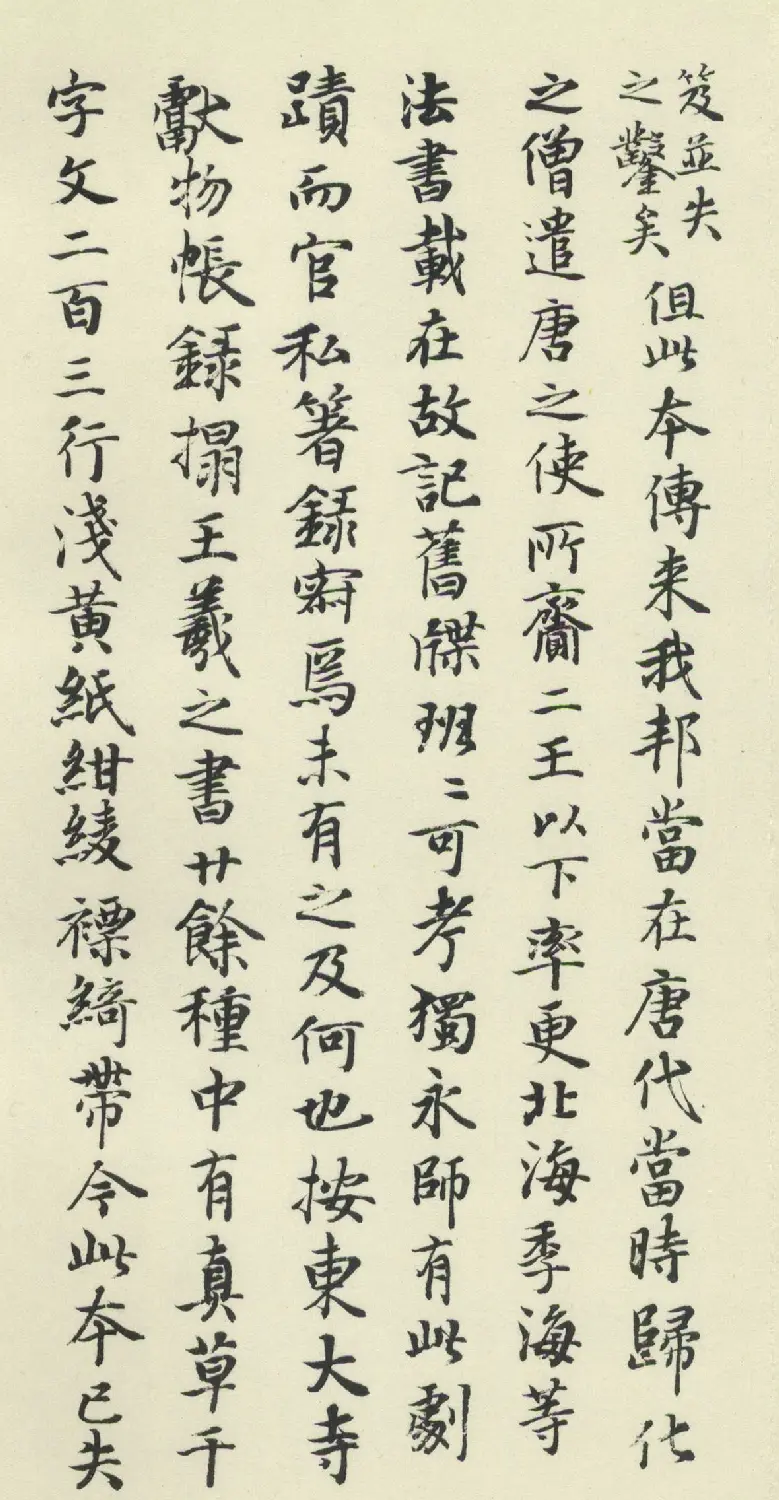 笈並失
之鑿矣
但此本傳来我邦當在唐代當時歸化
之僧遣唐之使所齎二王以下率更北海季海等
法書載在故記舊牒班〻可考獨永師有此劇
蹟而官私著錄寂焉未有之及何也按東大寺
獻物帳錄搨王羲之書廿餘種中有真草千
字文二百三行淺黄紙紺綾褾綺帶今此本已失